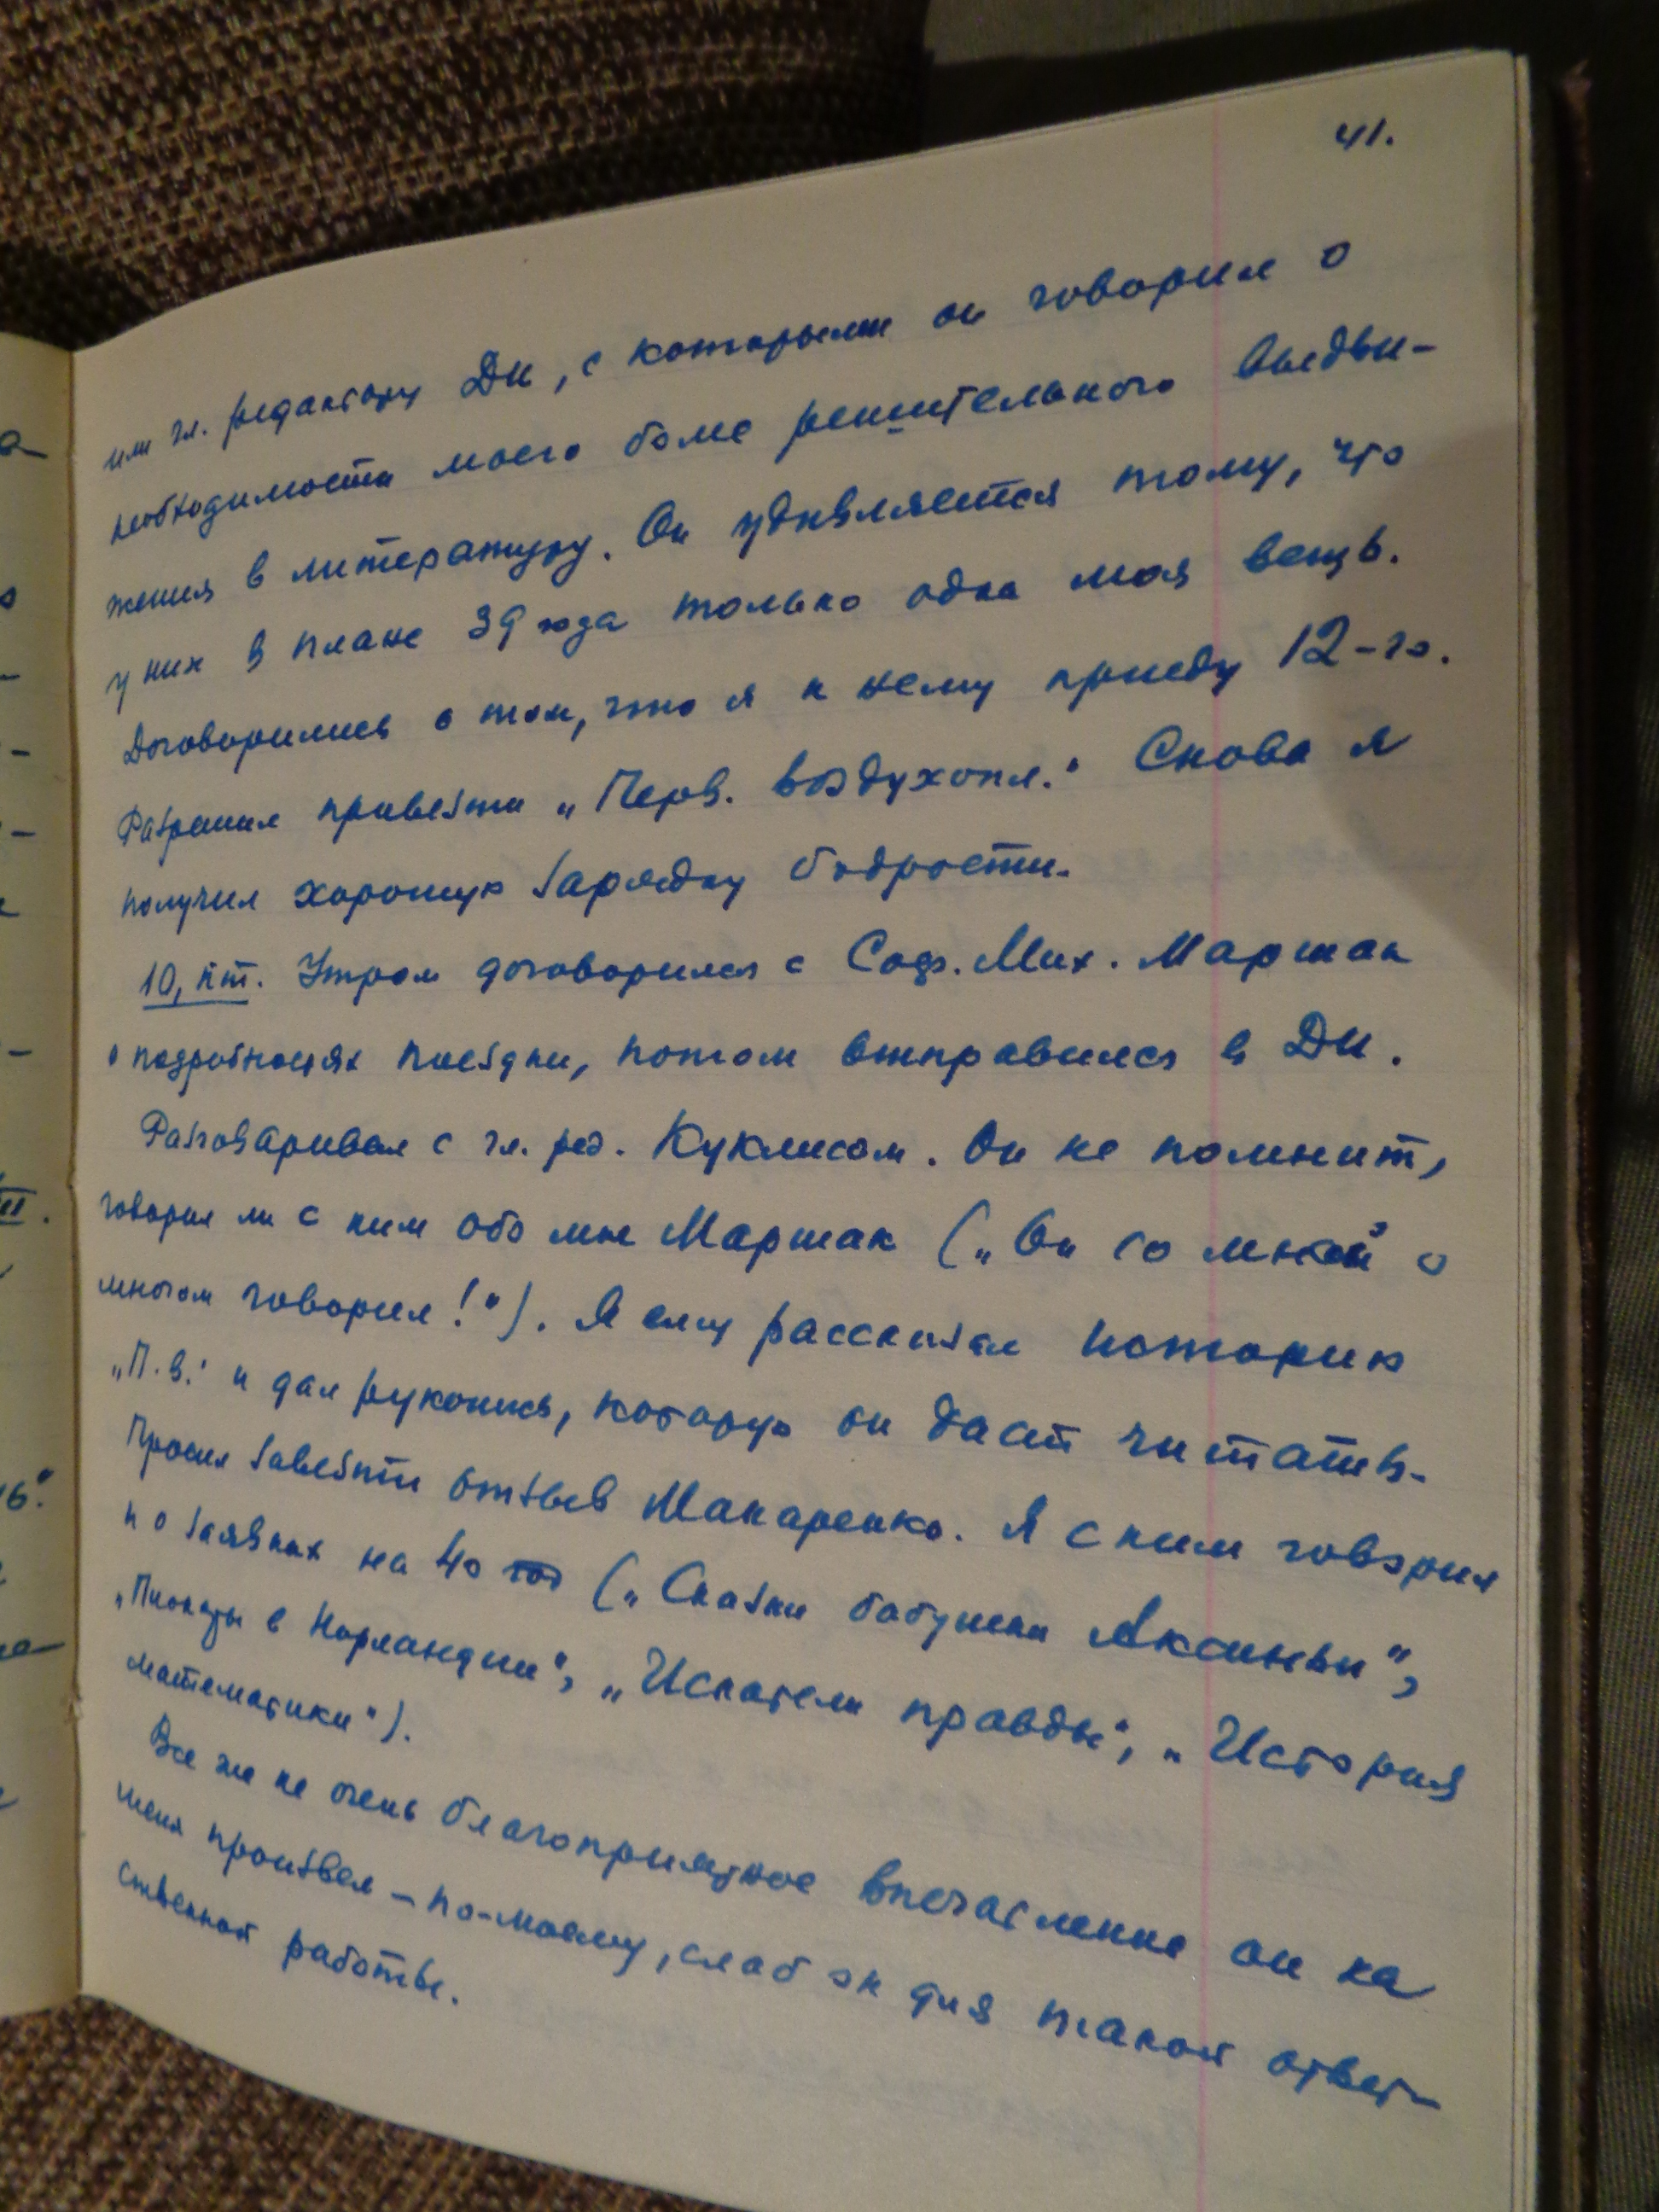 41.
или гл. редактору ДИ, с которыми он говорил о
необходимости моего более решительного выдви-
жения в литературу. Он удивляется тому, что
у них в плане 39 года только одна моя вещь.
Договорились о том, что я к нему приеду 12-го.
Разрешил привезти „Перв. воздухопл.“ Снова я
получил хорошую зарядку бодрости.
10, пт. Утром договорился с Соф. Мих. Маршак
о подробностях поездки, потом отправился в ДИ.
Разговаривал с гл. ред. Куклисом. Он не помнит,
говорил ли с ним обо мне Маршак („Он со мной о
многом говорил!“). Я ему рассказал историю
„П.В.“ и дал рукопись, которую он даст читать.
Просил завезти отзыв Макаренко. Я с ним говорил
и о заявках на 40 год („Сказки бабушки Аксиньи“,
в Нормандии“, „Искатели правды“, „История
математики“).
Все же не очень благоприятное впечатление он на
меня произвел – по-моему, слаб он для такой ответ-
ственной работы.